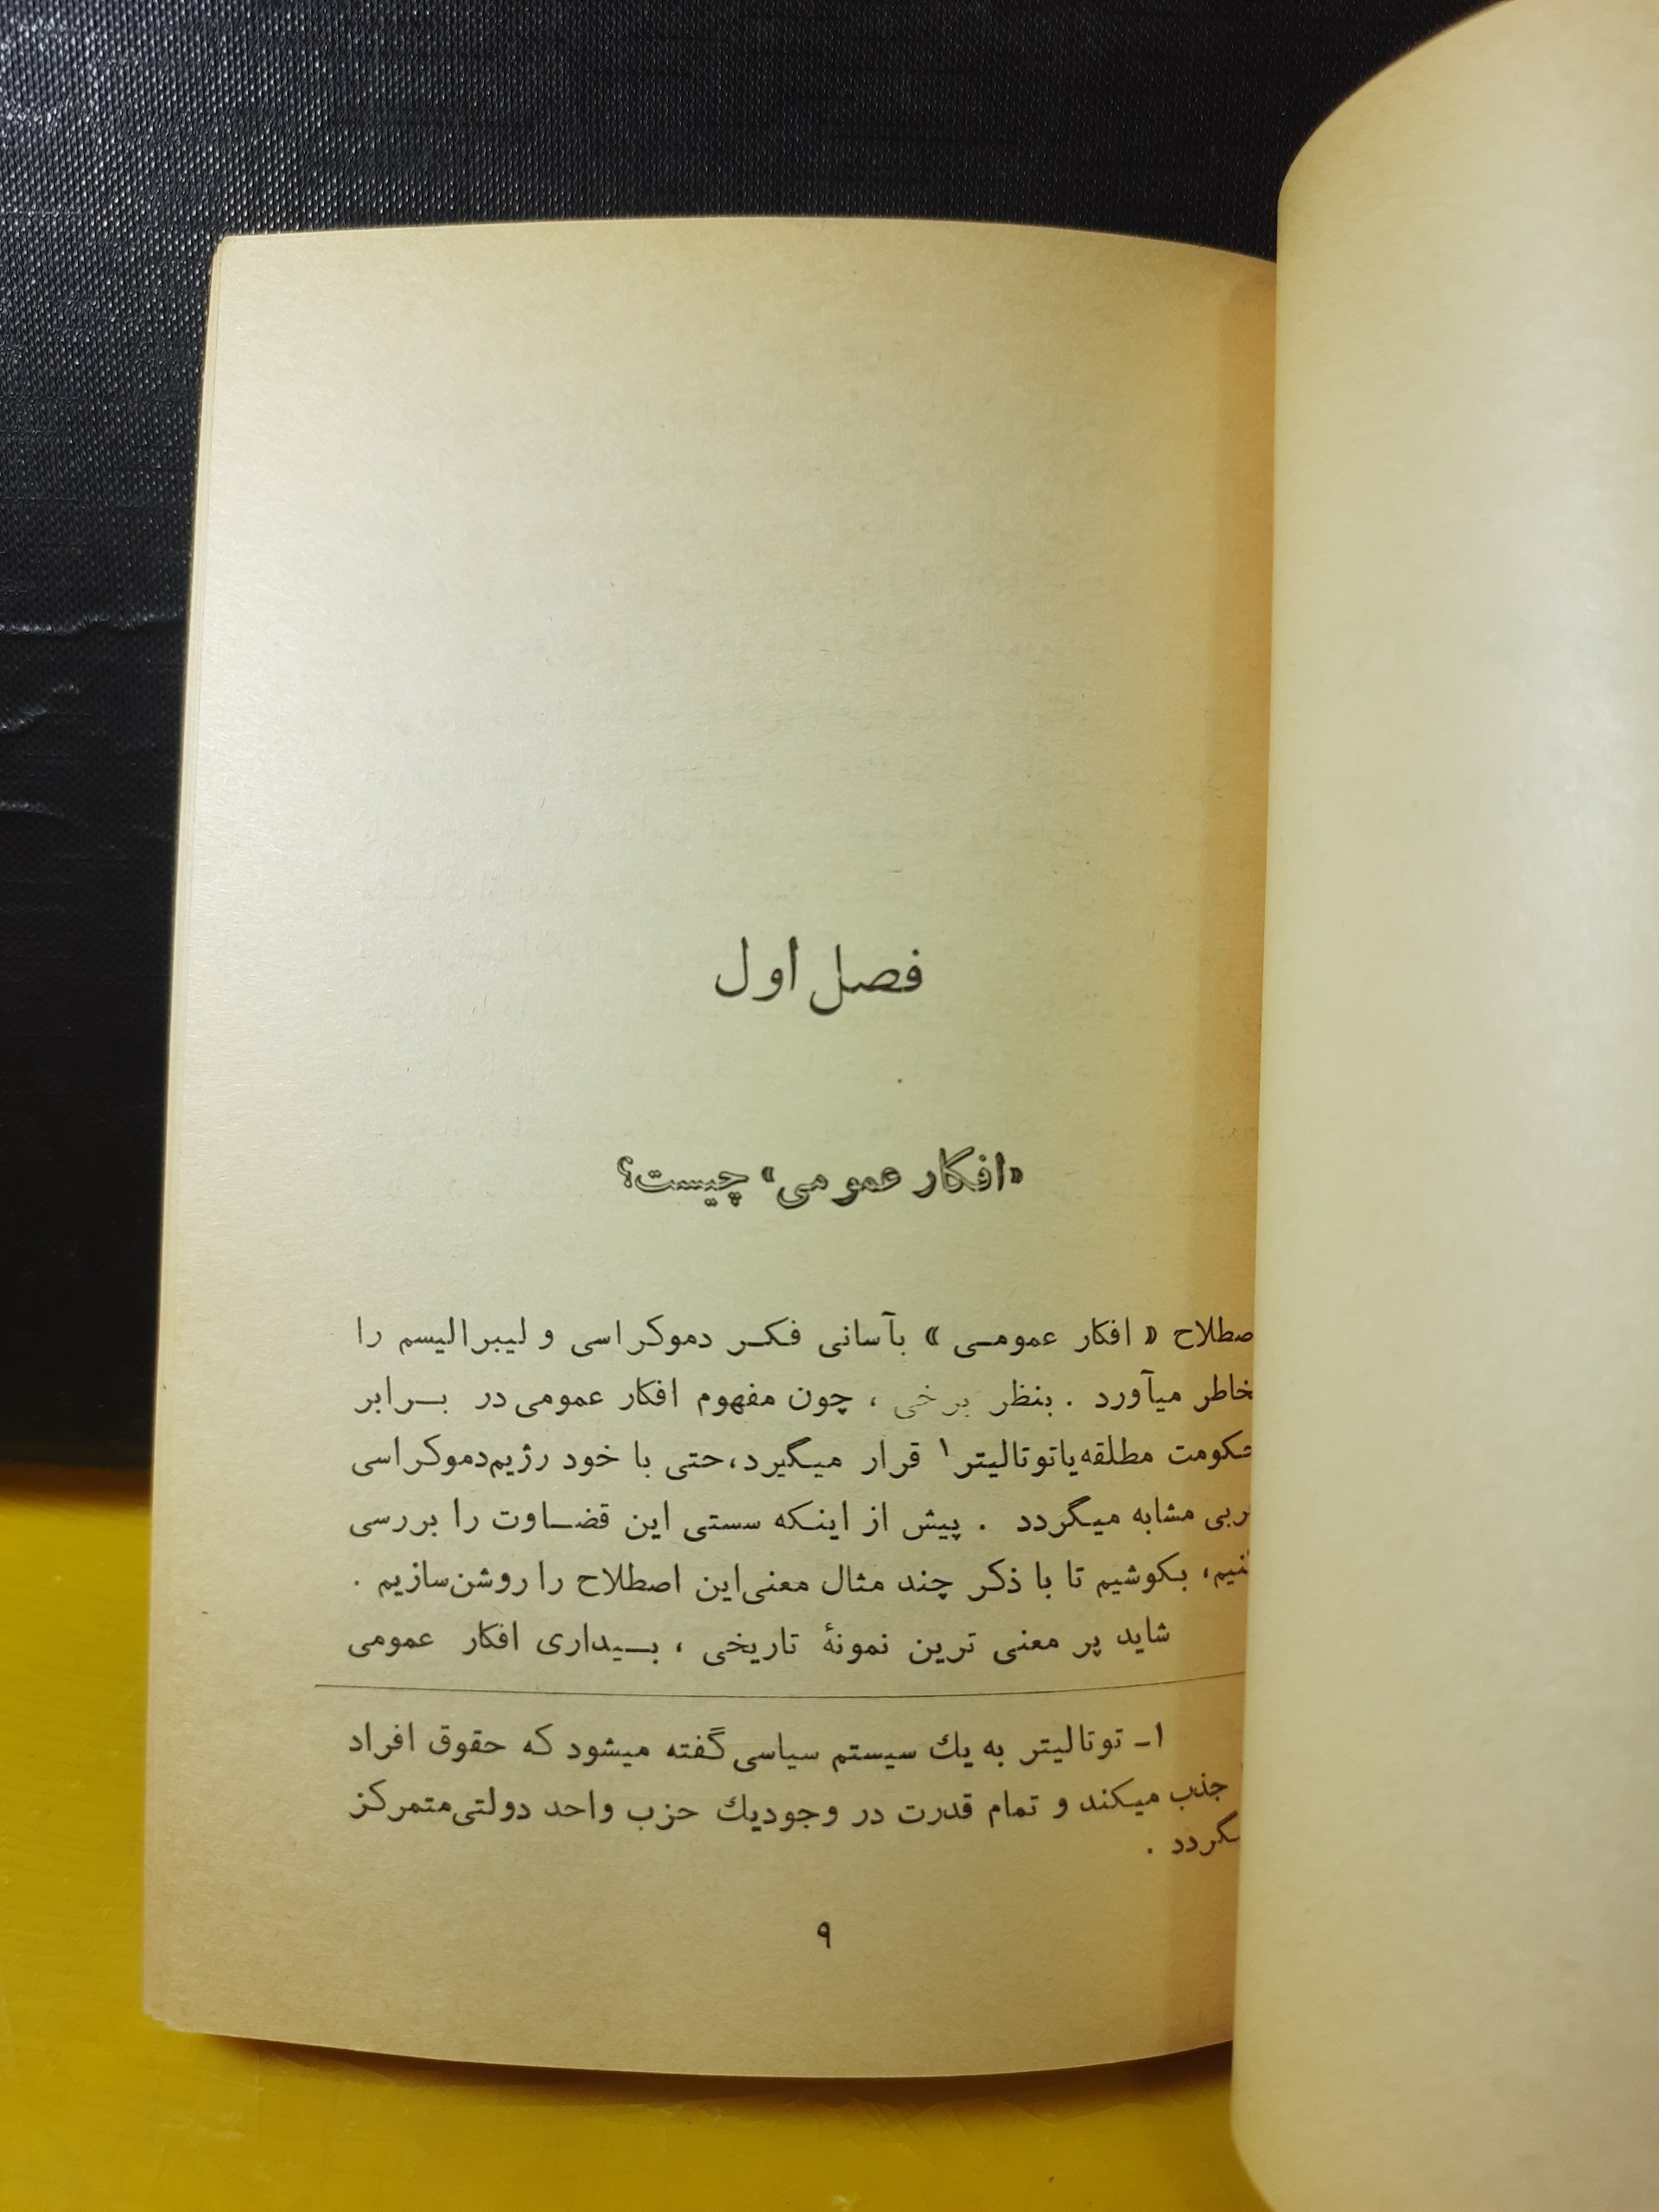 فصل اول
«افکار عمومی» چیست؟
اصطلاح « افکار عمومی » بآسانی فکر دموکراسی و لیبرالیسم را
بخاطر میآورد . بنظر برخی ، چون مفهوم افکار عمومی در برابر
حکومت مطلقه یا توتالیتر۱ قرار میگیرد، حتی با خود رژیم دموکراسی
مشابه میگردد . پیش از اینکه سستی این قضاوت را بررسی
کنیم، بکوشیم تا با ذکر چند مثال معنی این اصطلاح را روشن سازیم .
شاید پر معنی ترین نمونهٔ تاریخی ، بیداری افکار عمومی
۱ـ توتالیتر به یك سیستم سیاسی گفته میشود که حقوق افراد
جذب میکند و تمام قدرت در وجود یك حزب واحد دولتی متمرکز
میگردد .
۹